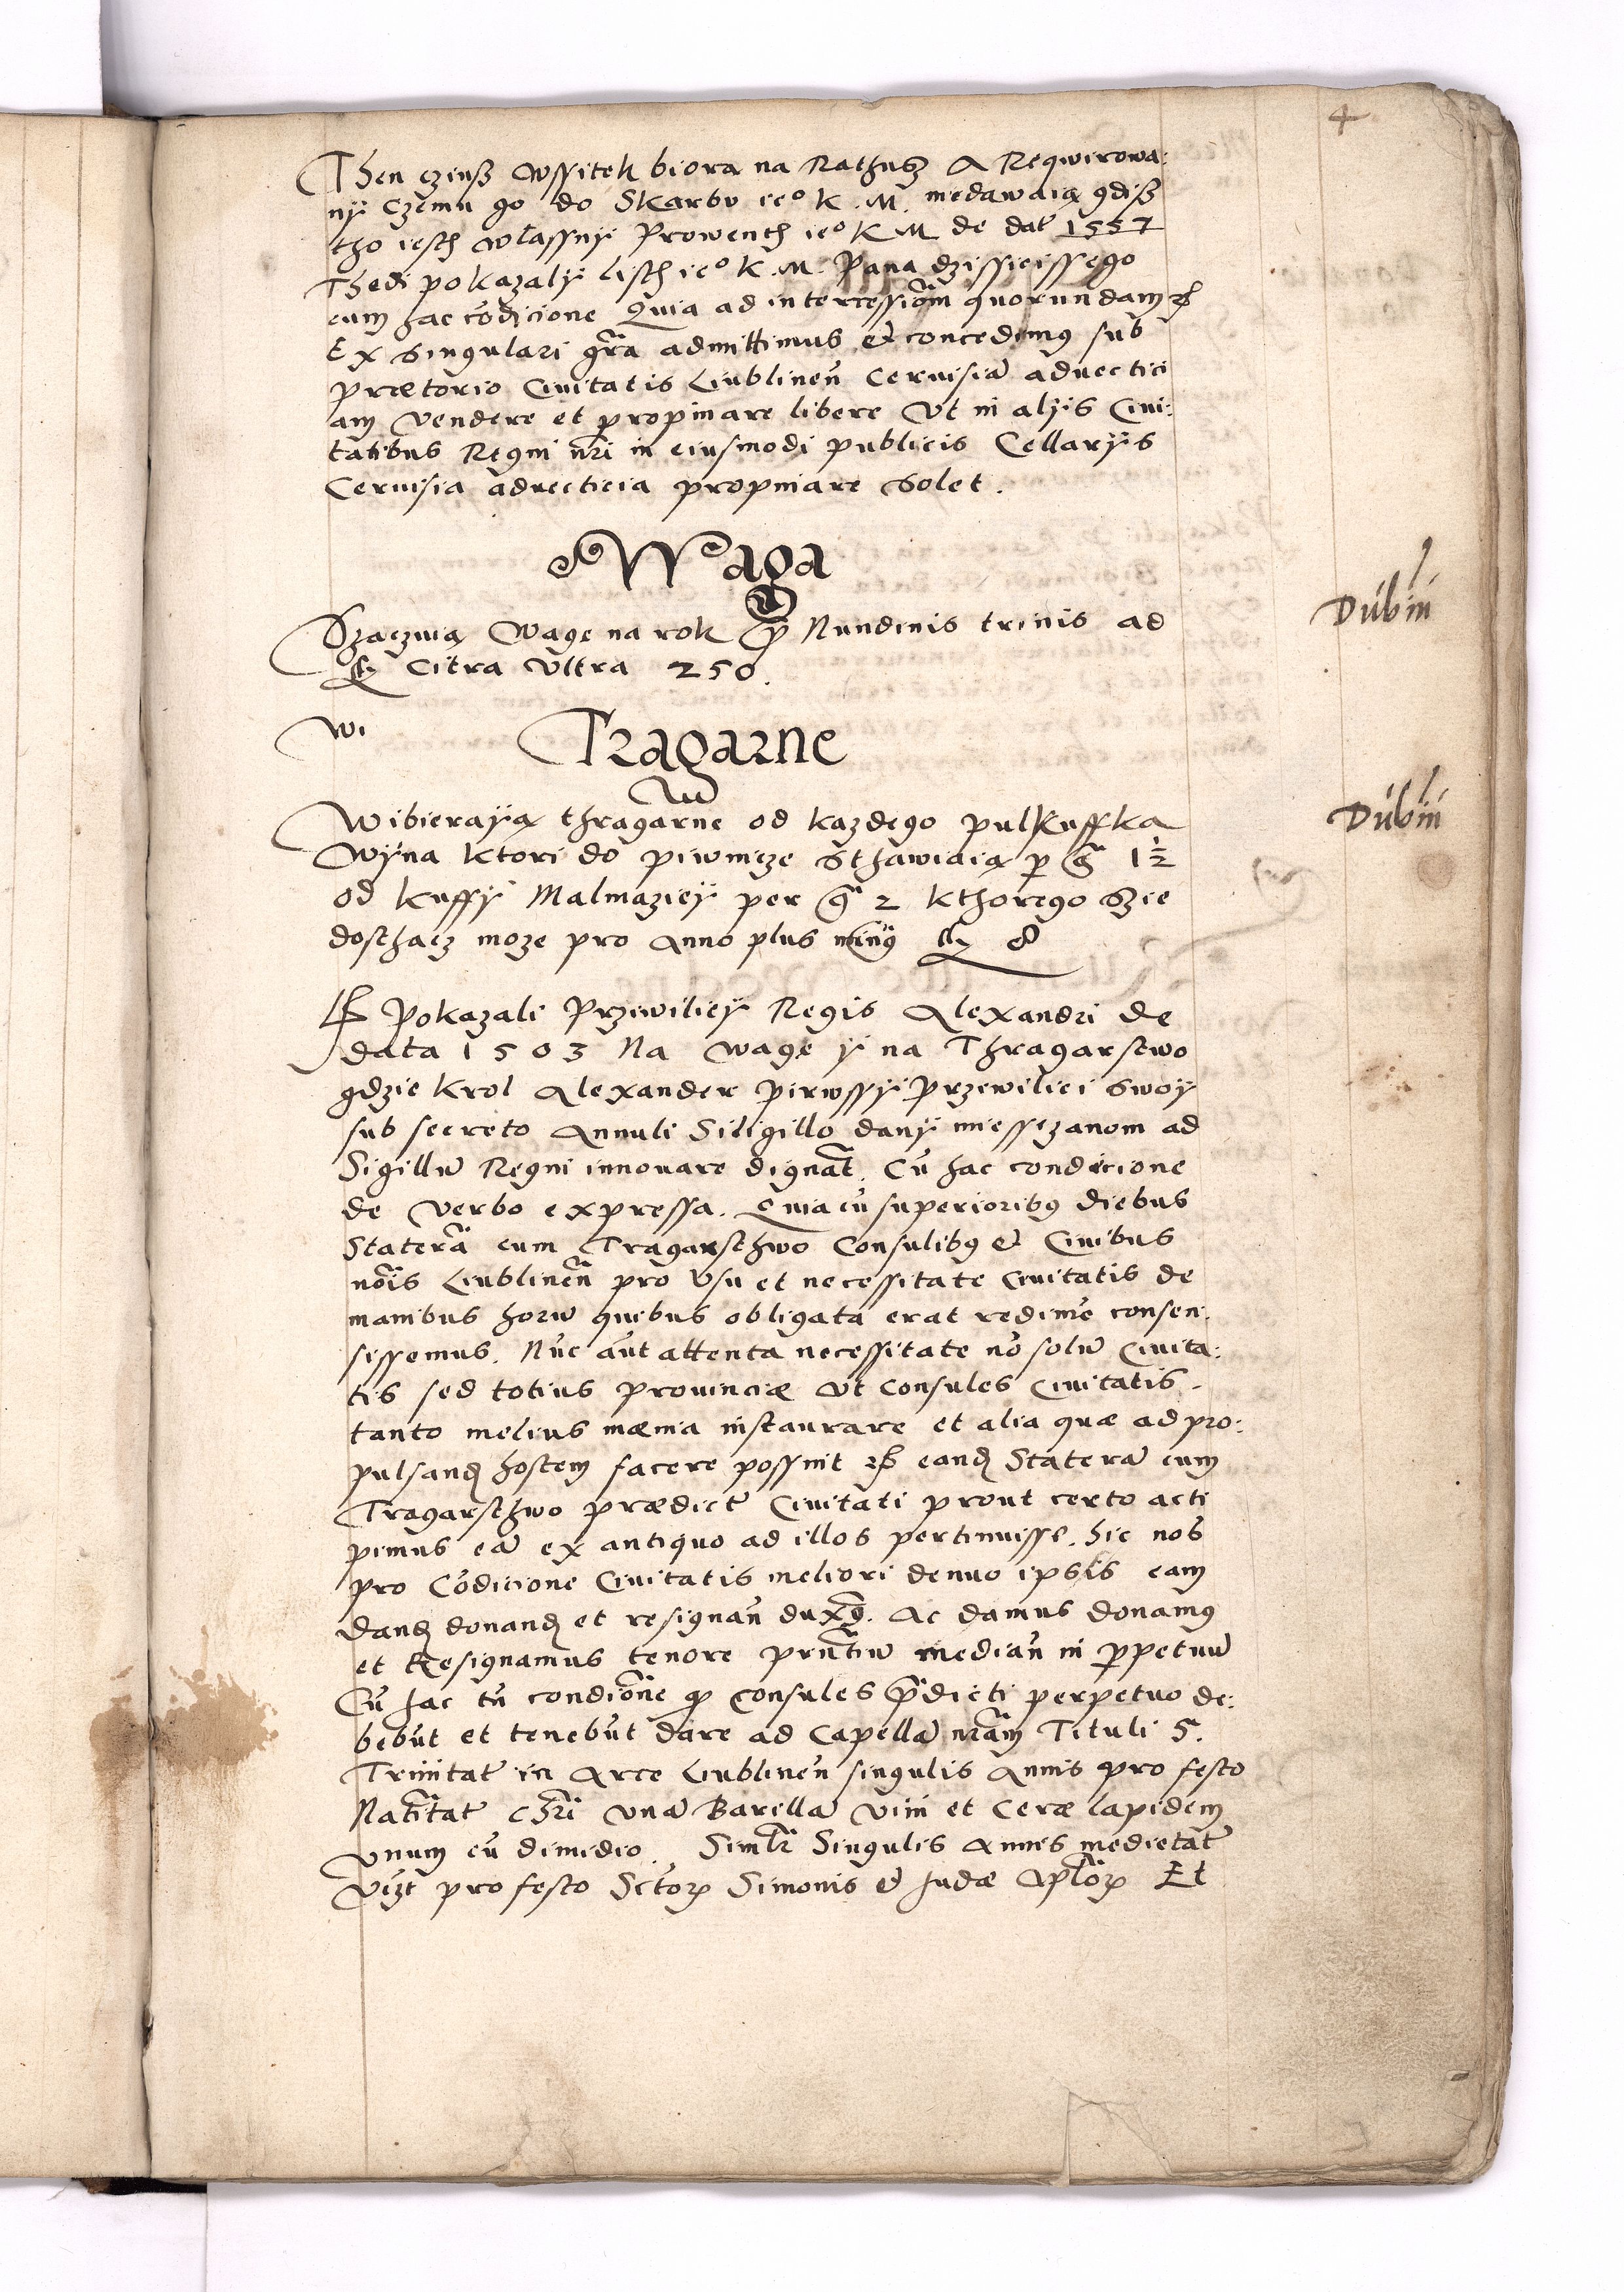 4
Then czinsz wssitek biora na Rathusz A Reqwirowa:
ny Czemu go do Skarbu ieo K. M. niedawaią gdisz
tho iesth własny Prowenth ieo K M de dat 1557
Thedi pokazaly listh ieo K. M. Pana dzissieissego
cum hac cōdicione Quia ad intercessiōm quorundam etc
Ex singulari grā admittimus et concedimus sub
prætorio Civitatis Liublinen̄ Cervisiā advectici
am vendere et propinare libere Vt in alijs Civi:
tatibus Regni nr̄i in eiusmodi publicis Cellarÿs
Cervisia advecticia propinare solet.
Waga
Dubiū
Dzaczwią Wagę na rok p Nundinis trinis ad
fl Citra Vltra 250.
Wi
Tragarne
Dubiū
Wibierayą thragarne od kazdego pulkuffka
Wyna ktori do piwnicze sthawiaią p gr 1½
od kuffy Malmaziey per gr 2 kthorego szie
dosthacz moze pro Anno plus minus fl 8
Pokazali Przywiliey Regis Alexandri de
data 1503 Na wagę y na Thragarstwo
gdzie krol Alexander pirwssy Przywiliei swoy
sub secreto Annuli Siligillo dany miessczanom ad
Sigillū Regni innovare dignat̄. Cū hac condicione
de verbo expressa. Quia cū superioribus diebus
Staterā cum Tragarsthwo Consulibus et Civibus
nōis Liublinen̄ pro Vsu et necessitate Civitatis de
manibus horū quibus obligata erat redimē consen:
sissemus. Nūc aūt attenta necessitate nō solū Civita:
tis sed totius provinciæ Vt Consules Civitatis
tanto melius mœnia instaurare et alia quæ ad pro:
pulsand hostem facere possint etc eand Staterā cum
Tragarsthwo prædict Civitati prout certo acti
pimus eā ex antiquo ad illos pertinuisse. hic nos
pro Cōdicione Civitatis meliori denuo ipsis eam
dand donand et resignan̄ duxus. Ac damus donamus
et Resignamus tenore prn̄tiū median̄ in ppetuū
Cū hac tn̄ condiōne q Consules pdicti perpetuo de:
bebūt et tenebūt dare ad Capellā nrām Tituli S.
Trinitat in Arce Liublinen̄ singulis Annis pro festo
Natitat chri̅ unā Barillā vini et Ceræ lapidem
unum cū dimidio. Simlr Singulis Annis medietat
Vizt pro festo Sctor Simonis et Judæ Aplor Et